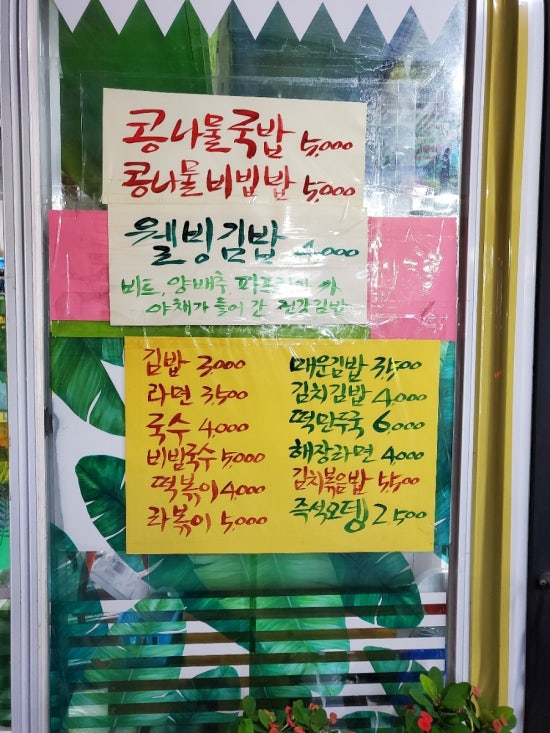 콩나물국밥 5,000
콩나물비빔밥 5,000
웰빙김밥 4,000
비트, 양배추
야채가 들어간 건강김밥
김밥 3,000
라면 3,500
국수 4,000
비빔국수 5,000
떡볶이 4,000
라볶이 5,000
매운김밥 3,500
김치김밥 4,000
떡만두국 6,000
해장라면 4,000
김치볶음밥 5,500
즉석오뎅 2,500